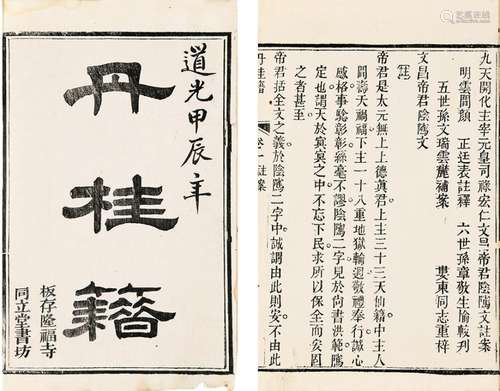 道光甲辰年
丹桂籍
板存隆福寺
同立堂書坊
九天開化主宰元皇司祿宏仁文昌帝君陰隲文註案
明雲間顏 正廷表註釋 六世孫章敬生愉較刋
五世孫文瑞雲麓補案 婁東同志重梓
文昌帝君陰隲文
註
帝君是太元無上上德眞君上主三十三天仙籍中主人
間壽夭禍福下主一十八重地獄輪迴敬禮奉行誠心
感格事騐彰彰絲毫不謬陰隲二字見於尙書洪範隲
定也謂天於冥冥之中不忘下民求所以保全而安固
之者甚至
帝君括全文之義於陰隲二字中誠謂由此則安不由此
丹桂籍 卷一註案